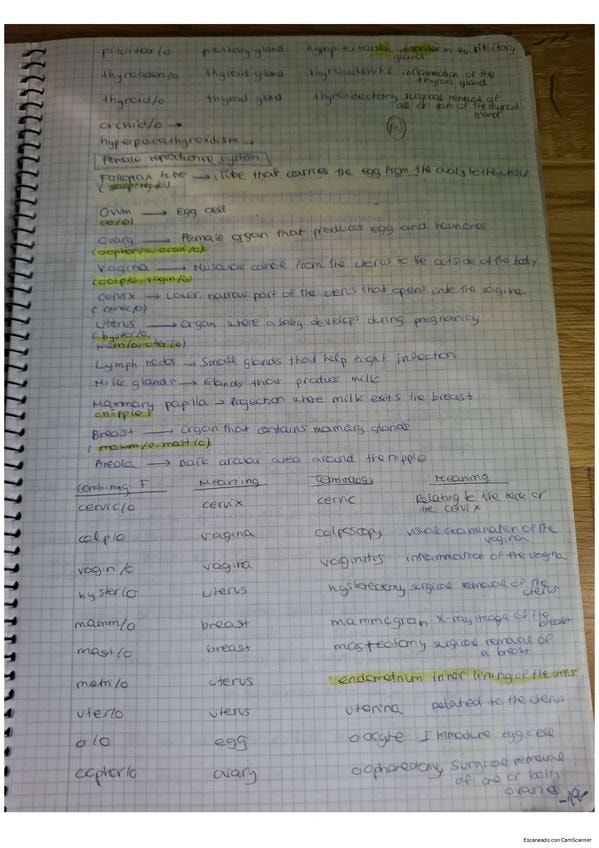 pituitar/o pituitary gland hypopituitarism pituitary
gland
thyroaden/o thyroid gland thyroadenitis inflammation of the
thyroid gland
thyroid/o thyroid gland thyroidectomy surgical removal of
all or part of the thyroid
gland
orchid/o →
hyperparathyroidism →
Female reproductive system
Fallopian tube → Tube that carries the egg from the ovary to the uterus
(salping/o)
Ovum → Egg cell
(o/o)
Ovary → Female organ that produces egg and hormones
(oophor/o, ovari/o)
Vagina → Muscular canal from the uterus to the outside of the body
(colp/o, vagin/o)
Cervix → Lower, narrow part of the uterus that opens into the vagina
(cervic/o)
Uterus → Organ where a baby develops during pregnancy
(hyster/o,
metr/o, uter/o)
Lymph nodes → Small glands that help fight infection
Milk glands → Glands that produce milk
Mammary papilla → Projection where milk exits the breast
(nipple)
Breast → Organ that contains mamary glands
(mamm/o, mast/o)
Areola → Dark circular area around the nipple
Combining F Meaning Terminology Meaning
cervic/o cervix cervic Relating to the neck or
the cervix
colp/o vagina colposcopy visual examination of the
vagina
vagin/o vagina vaginitis inflammation of the vagina
hyster/o uterus hysterectomy surgical removal of the
uterus
mamm/o breast mammogram X-ray image of the
breast
mast/o breast mastectomy surgical removal of
a breast
metr/o uterus endometrium inner lining of the uterus
uter/o uterus uterina Related to the uterus
o/o egg oocyte Immature egg cell
oophor/o ovary oophorectomy surgical removal
of one or both
ovaries
-19-
Escaneado con CamScanner